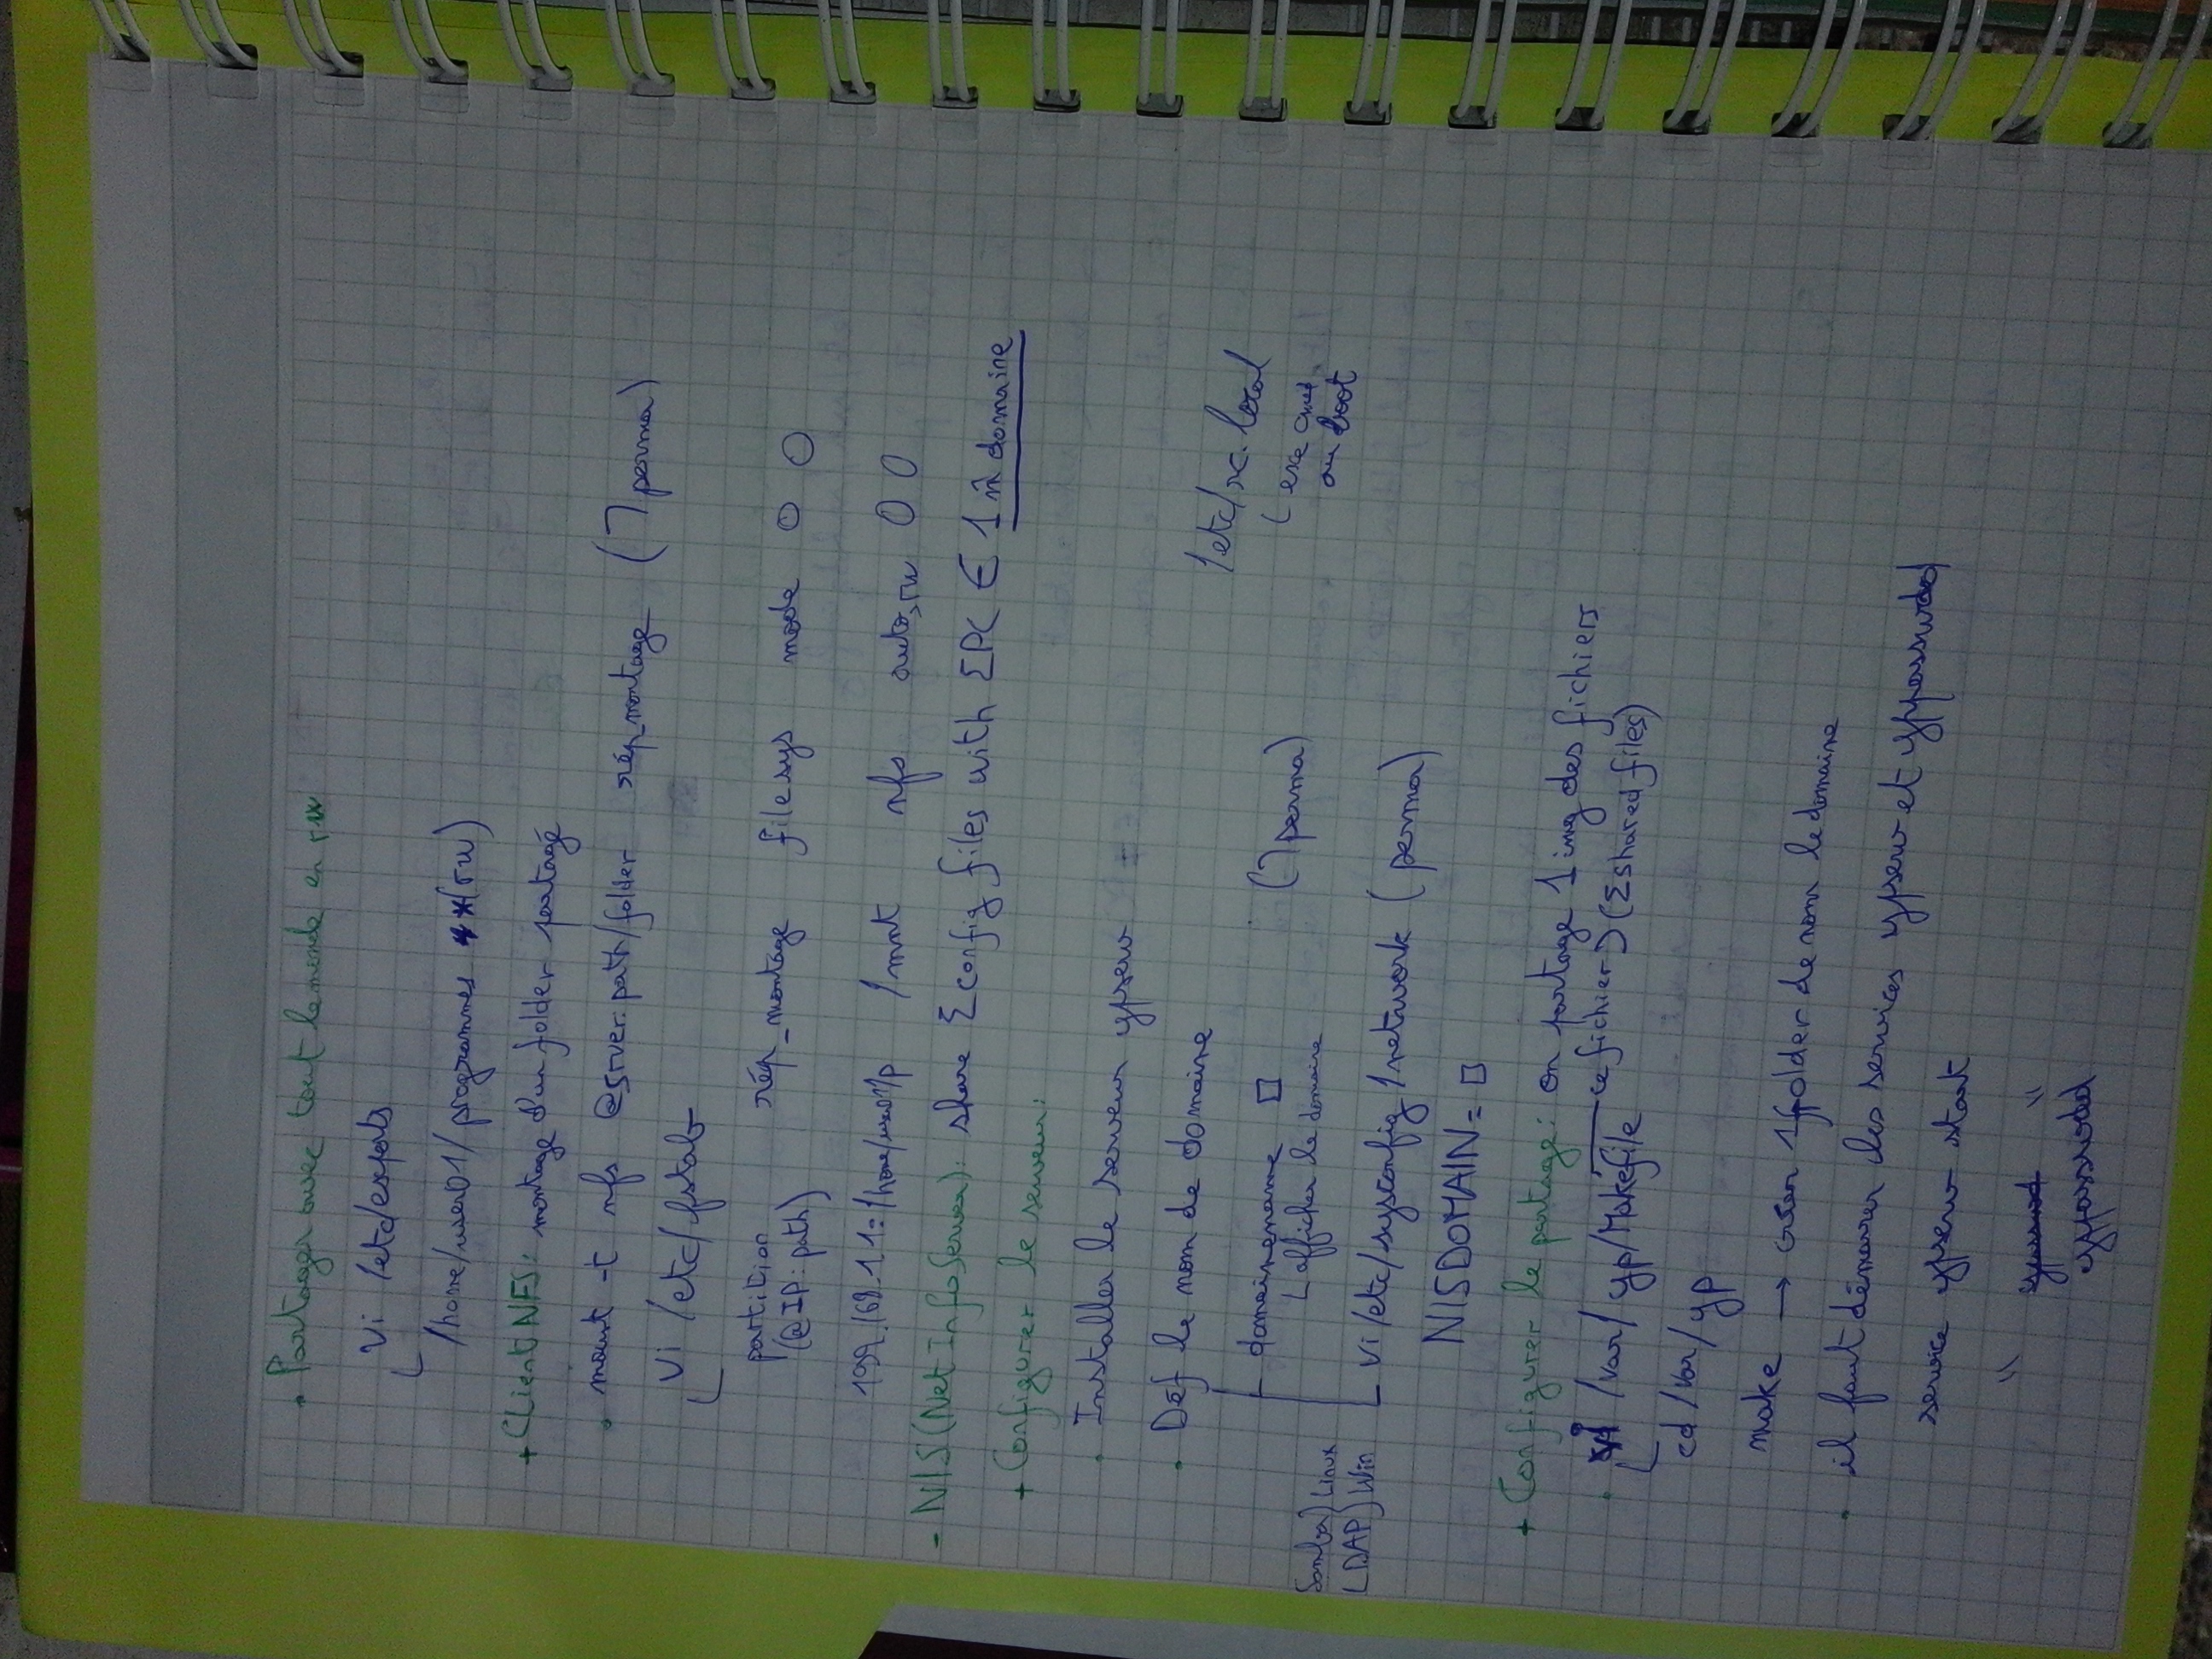 . Partager avec tout le monde en rw
Vi /etc/exports
/home/user01/programmes *(rw)
+ Client NFS: montage d'un folder partagé
. mount -t nfs @srver:path/folder rép_montage (¬perma)
Vi /etc/fstab
partition rép_montage filesys mode 0 0
(@IP:path)
192.168.1.1:/home/user01/p /mnt nfs auto,rw 0 0
- NIS (Net Info Server): share Σconfig files with ΣPC ∈ 1 m̂ domaine
+ Configurer le serveur:
. Installer le serveur ypserv
. Déf le nom de domaine
/etc/rc.local
domainename □ (¬perma)
exe
au boot
afficher le domaine
Samba) Linux
LDAP) Win
Vi /etc/sysconfig/network (perma)
NISDOMAIN= □
+ Configurer le partage: on partage 1 img des fichiers
. vi /var/yp/Makefile ce fichier ⊃ (Σshared files)
cd /var/yp
make → créer 1 folder de nom le domaine
. il faut démarrer les services ypserv et yppasswdd
service ypserv start
" "
yppasswdd